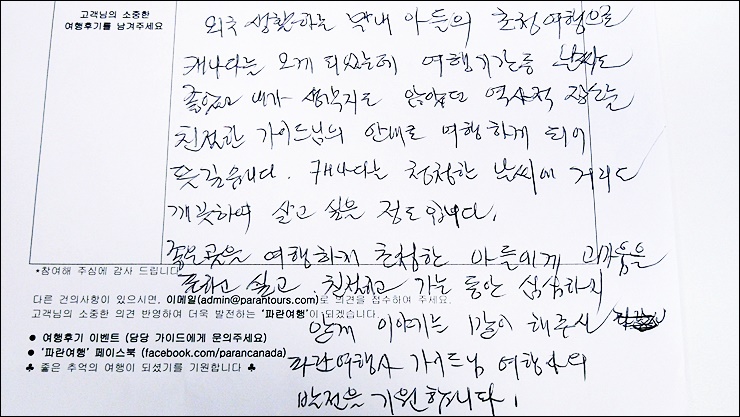 고객님의 소중한
여행후기를 남겨주세요
외국 생활하는 막내 아들의 초청여행으로
캐나다는 오게 되었는데 여행기간동 날씨도
좋았고 내가 생각지도 않았던 역사적 장소를
친절한 가이드님의 안내로 여행하게 되어
뜻깊습니다. 캐나다는 청청한 날씨에 거리도
깨끗하여 살고 싶은 정도입니다.
좋은곳을 여행하게 초청한 아들에게 고마움을
*참여해 주심에 감사 드립니다
표하고 싶고. 친절하고 가는 동안 심심하지
다른 건의사항이 있으시면, 이메일(admin@parantours.com)로 의견을 접수하여 주세요.
고객님의 소중한 의견 반영하여 더욱 발전하는 '파란여행'이 되겠습니다.
않게 이야기는 많이 해주신
● 여행후기 이벤트 (담당 가이드에게 문의주세요)
● '파란여행' 페이스북 (facebook.com/parancanada)
파란여행사 가이드님 여행사의
♣ 좋은 추억의 여행이 되셨기를 기원합니다 ♣
발전을 기원합니다.